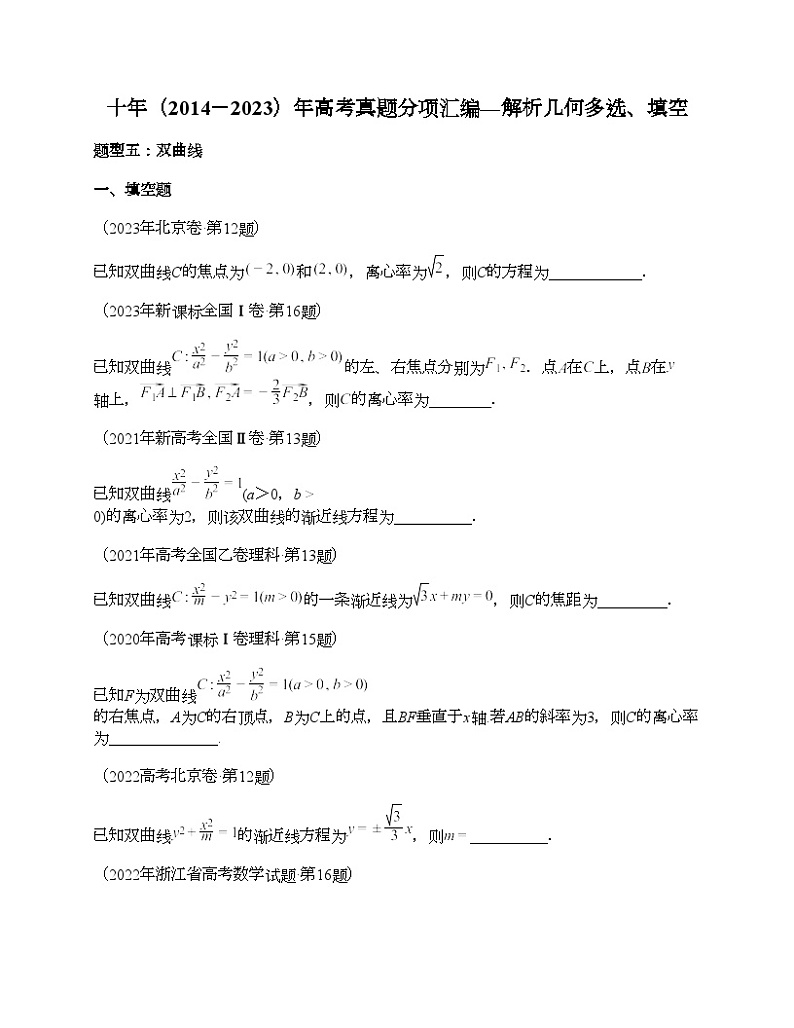 十年（2014－2023）年高考真题分项汇编—解析几何多选、填空
题型五：双曲线
一、填空题
（2023年北京卷·第12题）
已知双曲线C的焦点为(－2,0)和(2,0)，离心率为√2，则C的方程为____________．
（2023年新课标全国Ⅰ卷·第16题）
已知双曲线C:x²/a²－y²/b²=1(a>0,b>0)的左、右焦点分别为F₁,F₂．点A在C上，点B在y
轴上，F₁A⊥F₁B,F₂A=－2/3F₂B，则C的离心率为________．
（2021年新高考全国Ⅱ卷·第13题）
已知双曲线x²/a²－y²/b²=1(a＞0，b >
0)的离心率为2，则该双曲线的渐近线方程为__________．
（2021年高考全国乙卷理科·第13题）
已知双曲线C:x²/m－y²=1(m>0)的一条渐近线为√3x+my=0，则C的焦距为_________．
（2020年高考课标Ⅰ卷理科·第15题）
已知F为双曲线C:x²/a²－y²/b²=1(a>0,b>0)
的右焦点，A为C的右顶点，B为C上的点，且BF垂直于x轴.若AB的斜率为3，则C的离心率
为______________.
（2022高考北京卷·第12题）
已知双曲线y²+x²/m=1的渐近线方程为y=±√3/3x，则m=__________．
（2022年浙江省高考数学试题·第16题）